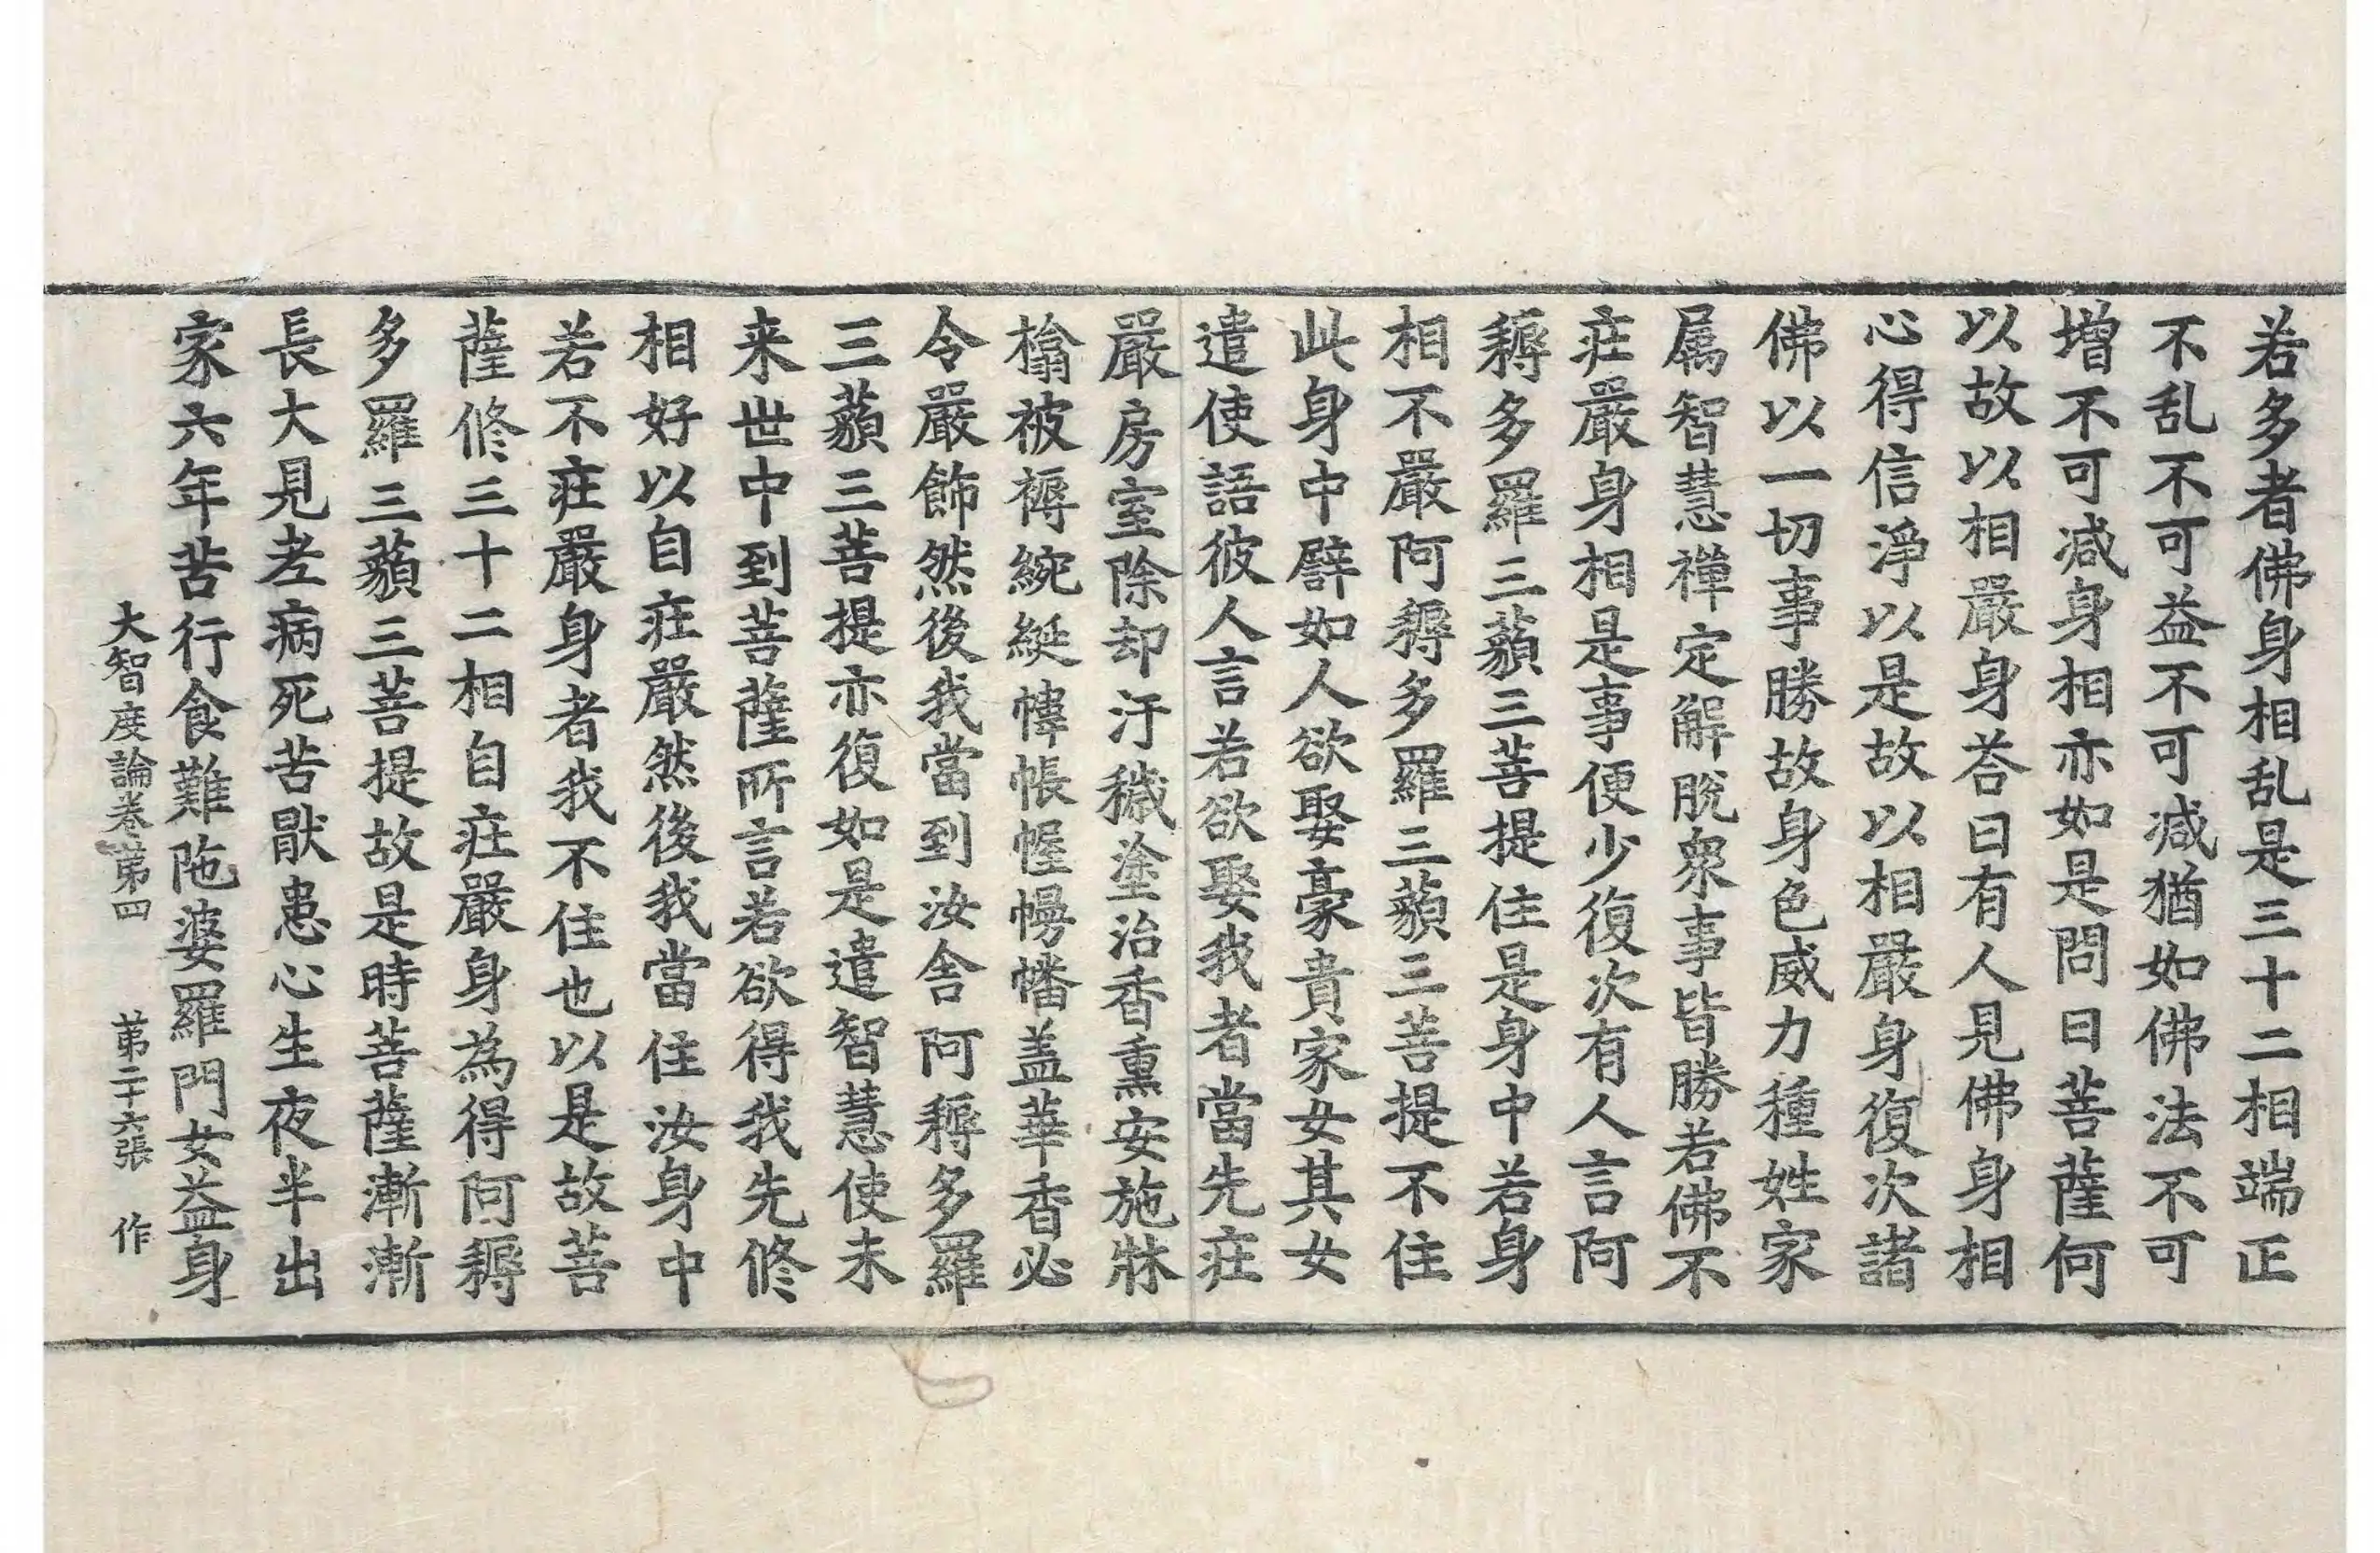 若多者佛身相乱是三十二相端正
不乱不可益不可减猶如佛法不可
增不可减身相亦如是問曰菩薩何
以故以相嚴身荅曰有人見佛身相
心得信淨以是故以相嚴身復次諸
佛以一切事勝故身色威力種姓家
屬智慧禪定解脫衆事皆勝若佛不
莊嚴身相是事便少復次有人言阿
耨多羅三藐三菩提住是身中若身
相不嚴阿耨多羅三藐三菩提不住
此身中譬如人欲娶豪貴家女其女
遣使語彼人言若欲娶我者當先莊
嚴房室除却汙穢塗治香熏安施牀
榻被褥綩綖幃帳幄幔幡盖華香必
令嚴飾然後我當到汝舍阿耨多羅
三藐三菩提亦復如是遣智慧使未
来世中到菩薩所言若欲得我先修
相好以自莊嚴然後我當住汝身中
若不莊嚴身者我不住也以是故菩
薩修三十二相自莊嚴身為得阿耨
多羅三藐三菩提故是時菩薩漸漸
長大見老病死苦猒患心生夜半出
家六年苦行食難陁婆羅門女益身
大智度論卷第四 第二十六張 作